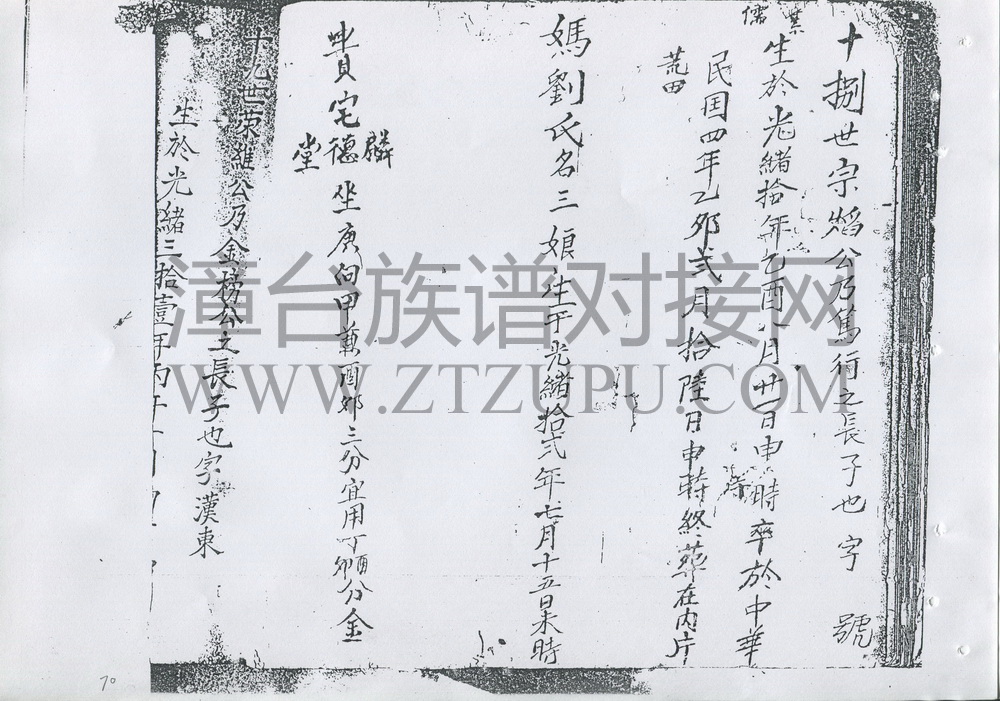 十捌世宗焰公乃篤行之長子也字 號
業儒
生於光緒拾年乙酉八月廿一日申時卒於中華
民国四年乙夘弍月拾陸日申時終葬在內庁
荒田
媽劉氏名三娘生于光緒拾弍年七月十五日未時
費宅德麟堂坐庚向甲兼酉夘三分宜用丁酉丁夘分金
十九世荣維公乃金榜公之長子也字漢東
生於光緒三拾壹年丙午
漳台族谱对接网
WWW.ZTZUPU.COM
70